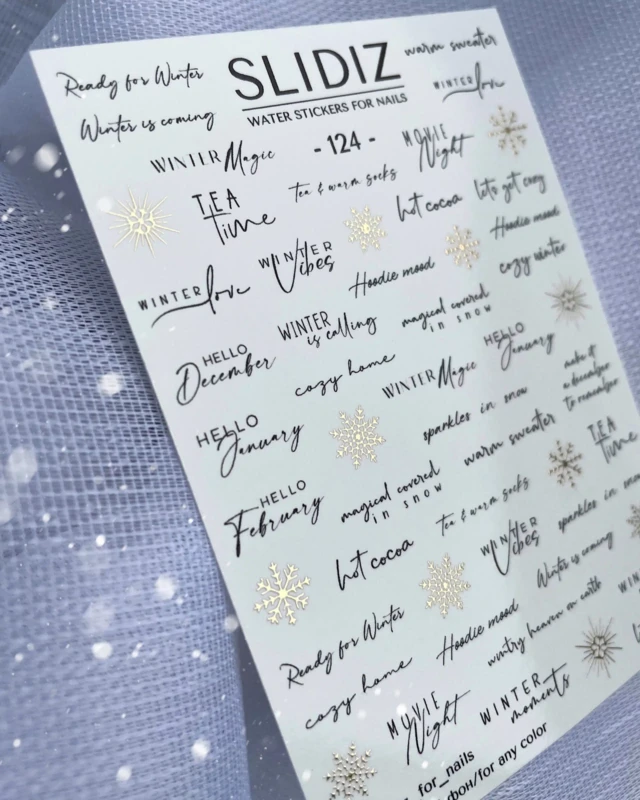 Ready for Winter
SLIDIZ
warm sweater
Winter is coming
WATER STICKERS FOR NAILS
WINTER love
WINTER Magic
- 124 -
MOVIE
Night
TEA
Time
Tea & warm socks
hot cocoa
lets get cozy
WINTER love
WINTER
Vibes
Hoodie mood
Hoodie mood
cozy winter
HELLO
December
WINTER
is calling
magical covered
in snow
HELLO
January
cozy home
WINTER Magic
make it
a december
to remember
HELLO
January
sparkles in snow
warm sweater
TEA
Time
HELLO
February
magical covered
in snow
Tea & warm socks
sparkles in snow
hot cocoa
WINTER
Vibes
Winter is coming
Ready for Winter
Hoodie mood
wintry heaven on earth
cozy home
MOVIE
Night
WINTER
moments
for_nails
фон/for any color